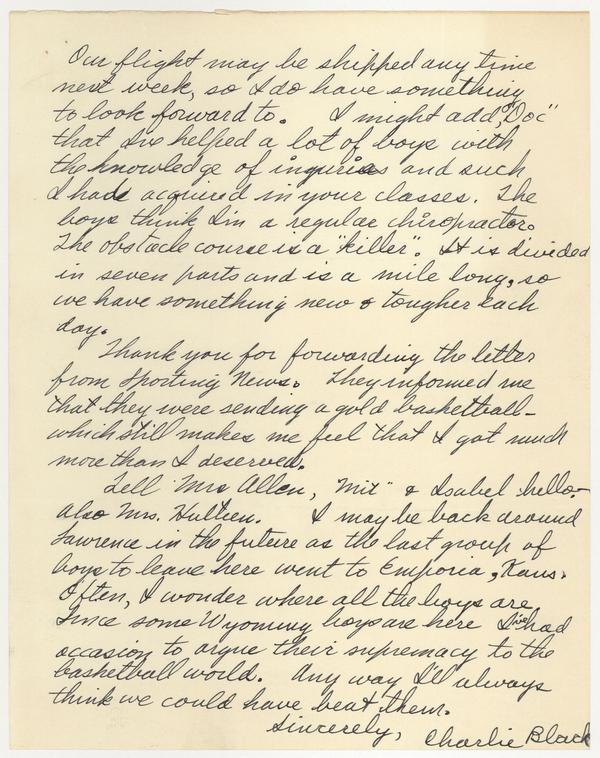 Our flight may be shipped any time
next week, so I do have something
to look forward to. I might add, "Doc"
that I've helped a lot of boys with
the knowledge of injuries and such
I had acquired in your classes. The
boys think I'm a regular chiropractor.
The obstacle course is a "killer". It is divided
in seven parts and is a mile long, so
we have something new & tougher each
day.
Thank you for forwarding the letter
from Sporting News. They informed me
that they were sending a gold basketball-
which still makes me feel that I got much
more than I deserved.
Tell Mrs Allen, "Mit" & Isabel hello-
also Mrs. Hulteen. I may be back around
Lawrence in the future as the last group of
boys to leave here went to Emporia, Kans.
Often, I wonder where all the boys are
Since some Wyoming boys are here I've had
occasion to argue their supremacy to the
basketball world. Any way I'll always
think we could have beat them.
Sincerely,
Charlie Black